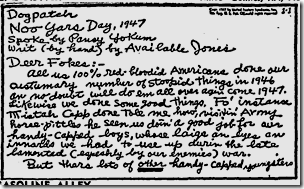 Dogpatch
Noo Yars Day, 1947
Spoke by Pansy Yokum
Writ (by hand) by Available Jones
Deer Fokes:-
All us 100% red blooded Americans done our
customary number of stoopid things in 1946
an no doubt will do em all over again come 1947.
Likewise we done some good things, Fo' instance
Mistah Capp done tole me how, visitin' Army
horse-pittles he seen us doin' a good job for our
handy-capped boys, whose laigs an eyes an
innards we had to use up durin the late
lamented (espeshly by our enemies) war.
But thars lots of other handy-capped youngsters
GASOLINE ALLEY